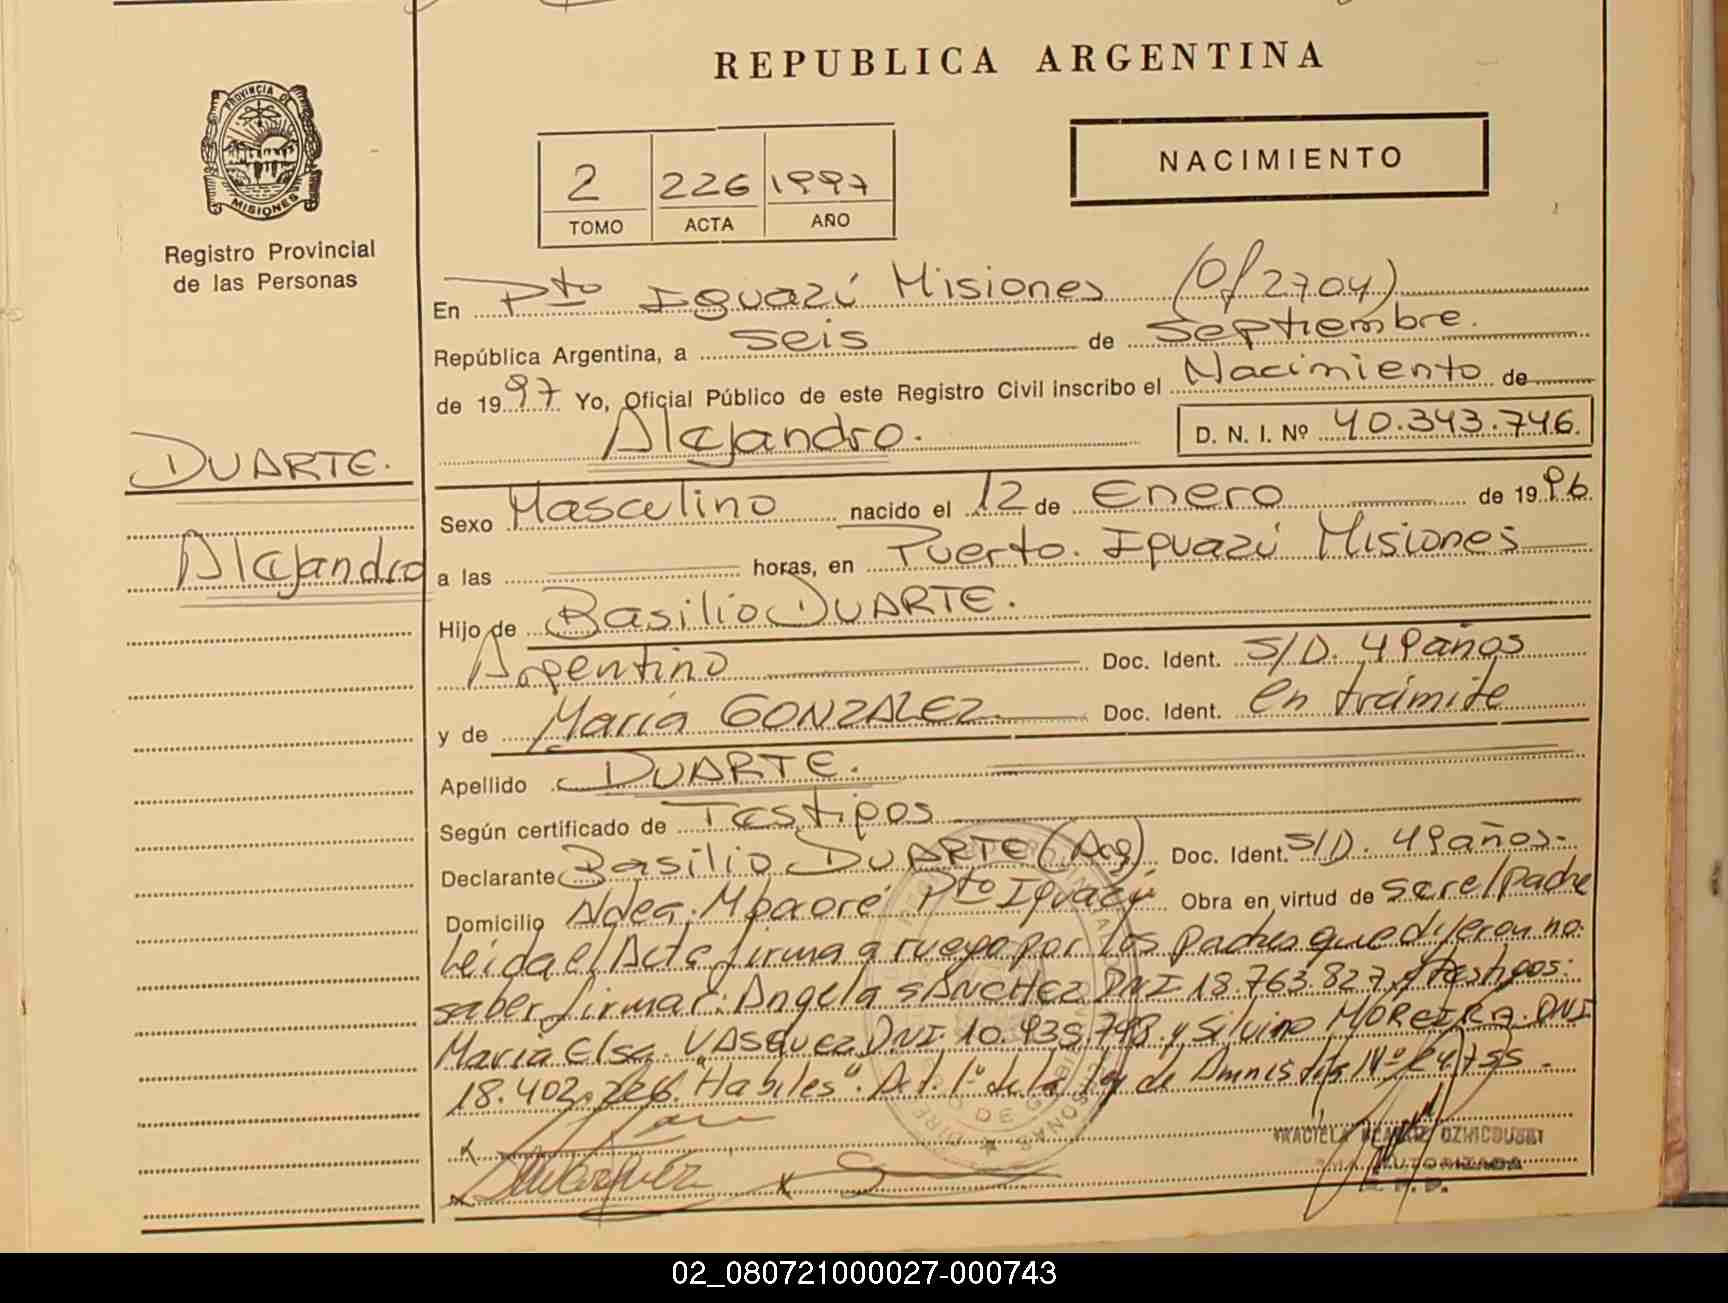 REPUBLICA ARGENTINA
PROVINCIA DE
MISIONES
Registro Provincial
de las Personas
NACIMIENTO
2 226 1997
TOMO ACTA AÑO
En Pto Iguazú Misiones (Of 2704)
República Argentina, a seis de Septiembre.
de 1997 Yo, Oficial Público de este Registro Civil inscribo el Nacimiento de
Alejandro. D. N. I. Nº 40.343.746.
DUARTE.
Alejandro
Sexo Masculino nacido el 12 de Enero de 1996.
a las horas, en Puerto Iguazú Misiones
Hijo de Basilio DUARTE.
Argentino Doc. Ident. S/D. 49 años
y de María GONZALEZ Doc. Ident. en trámite
Apellido DUARTE.
Según certificado de Testigos
Declarante Basilio DUARTE (Arg) Doc. Ident. S/D. 49 años-
Domicilio Aldea Mbororé Pto Iguazú Obra en virtud de ser el padre
Leída el Acta firma a ruego por los padres que dijeron no
saber firmar: Angela SANCHEZ DNI 18.763.827 y testigos:
María Elsa VASQUEZ DNI. 10.935.798 y Silvino MOREIRA. DNI
18.402. "Habiles". Art. 1º de la ley de Amnistía Nº
AUTORIZADA
02_080721000027-000743